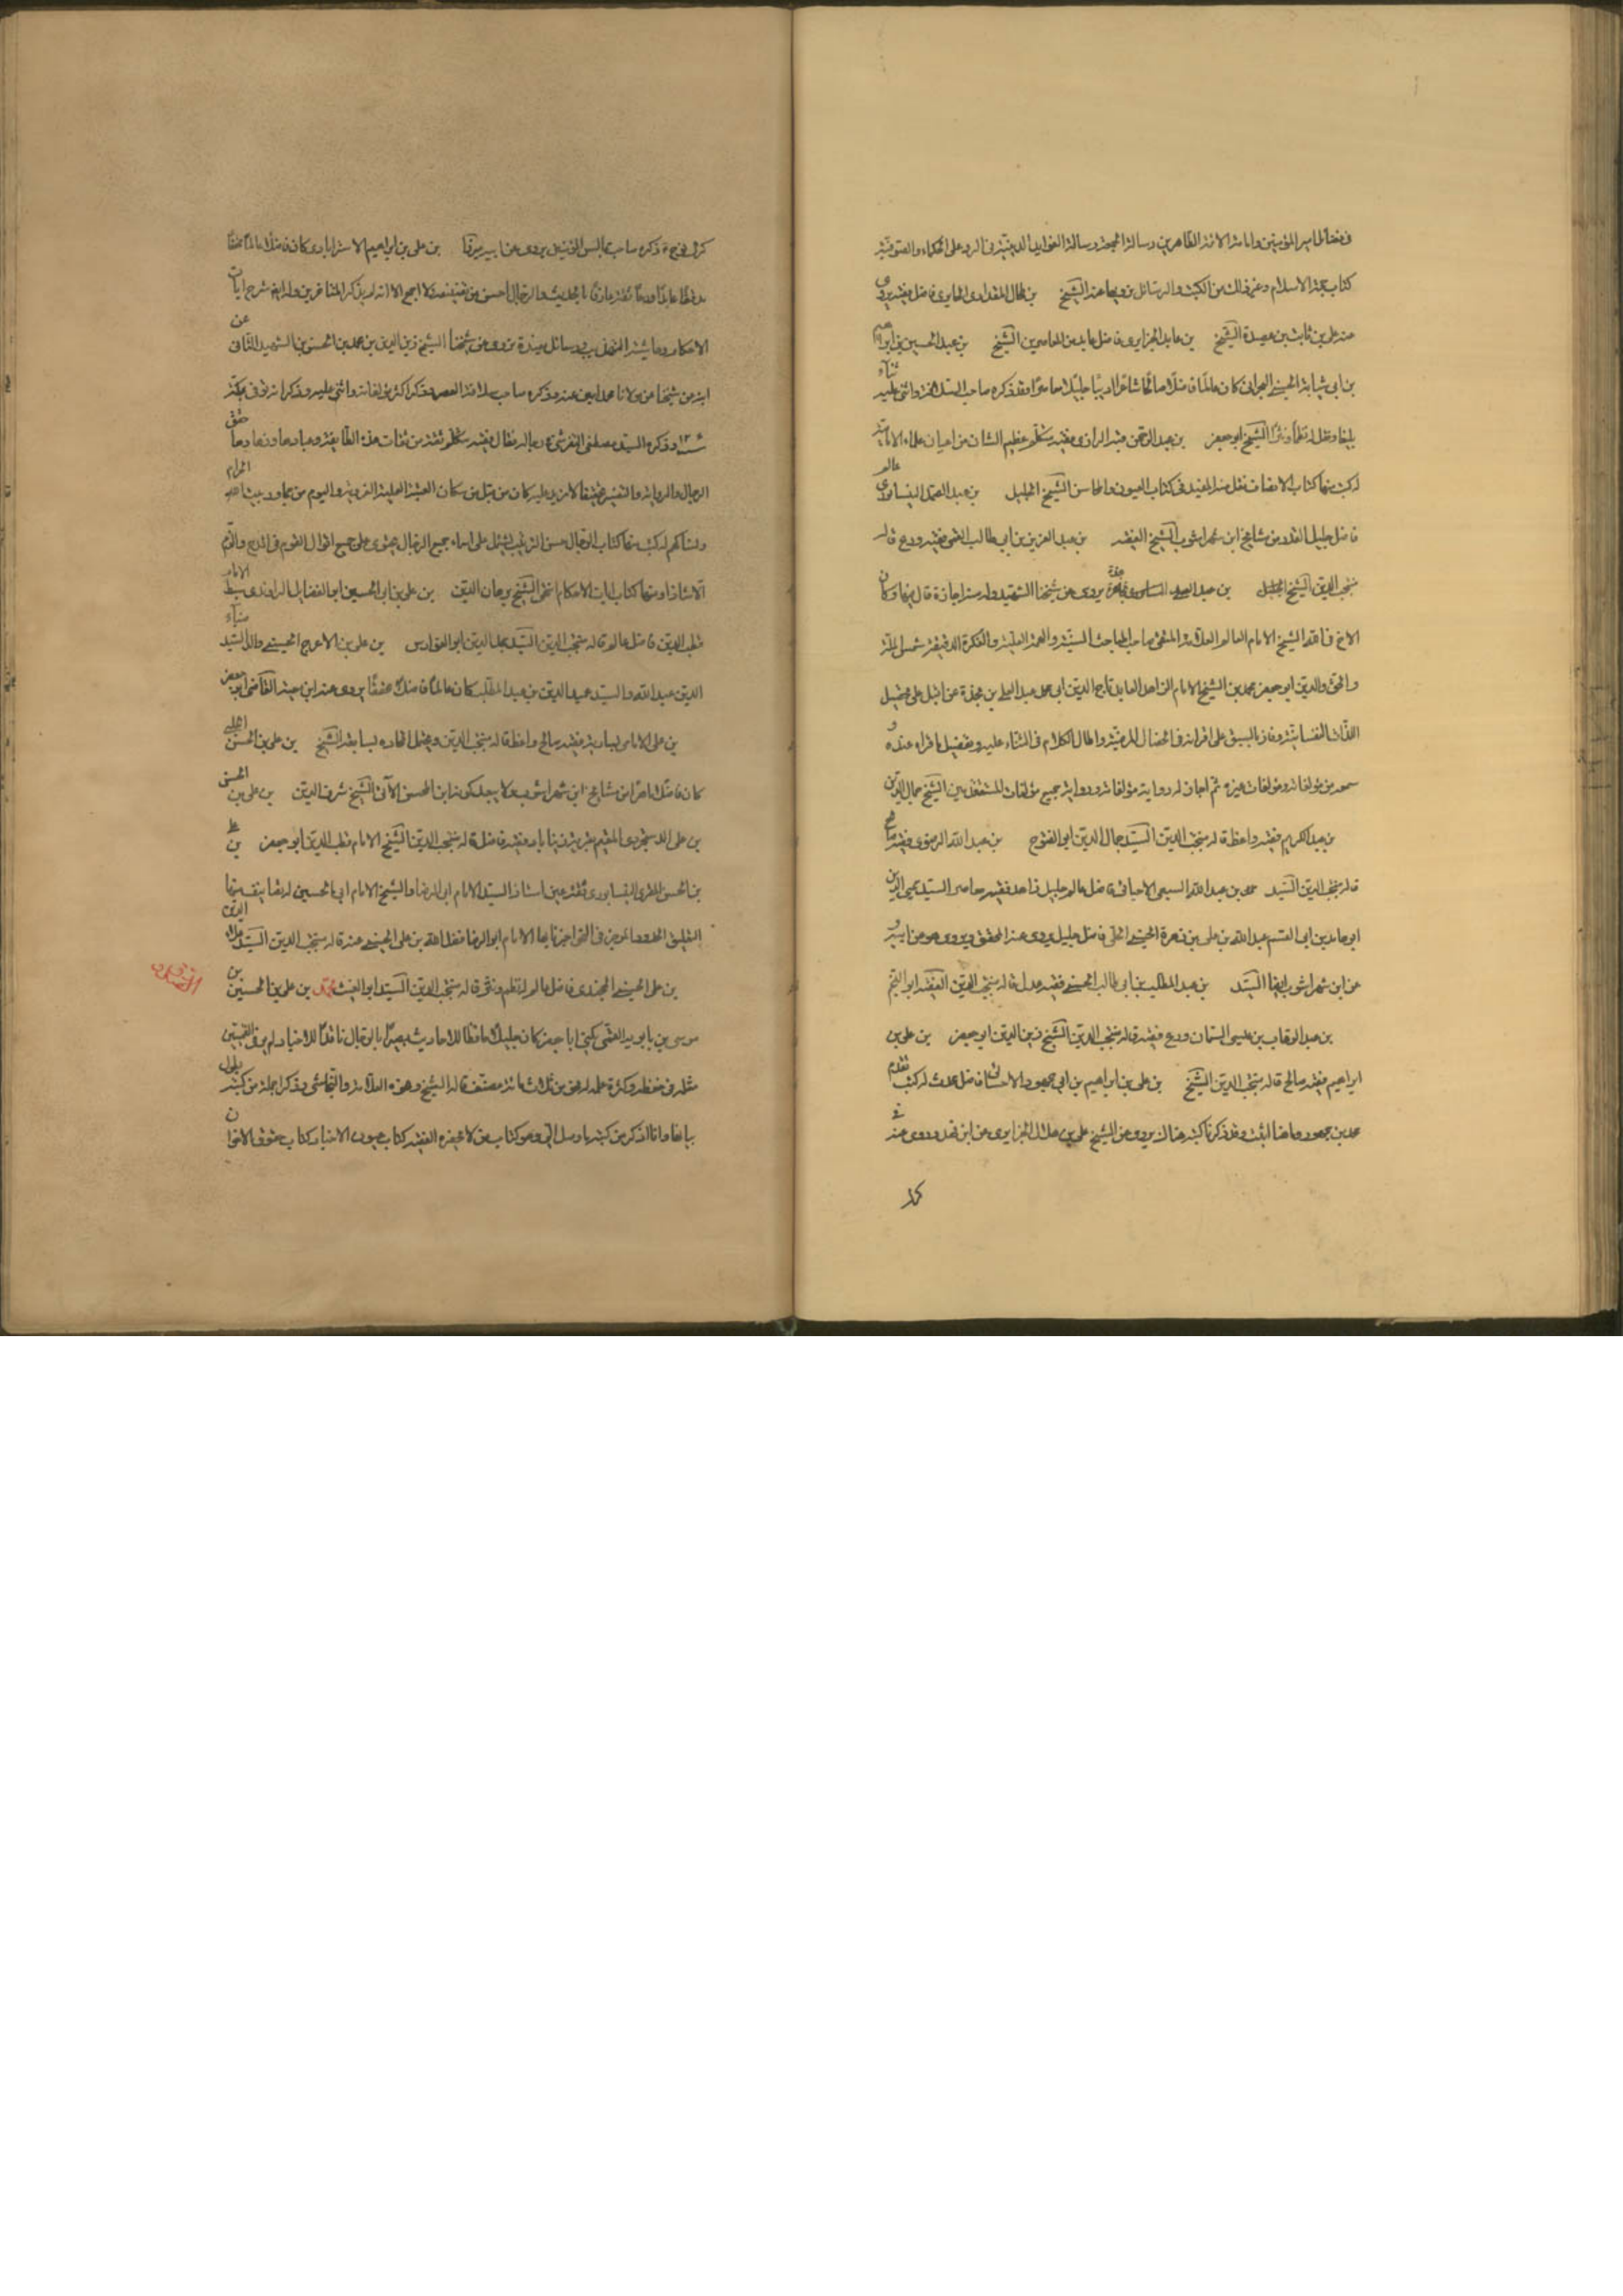 في فضائل امير المؤمنين وامامة الائمة الطاهرين ورسالة الجمعة ورسالة الفوايد الدينية في الرد على الحكماء والصوفية
كتاب حجة الاسلام وغير ذلك من الكتب والرسائل نرويها عنه الشيخ بن المقدادى فاضل فقيه يروى
عنه على بن ثابت بن عصيدة الشيخ بن عابد الجزايرى فاضل عابد من المعاصرين الشيخ بن عبد الحسين بن ابراهيم
بن ابى شبابة الحسينى البحرانى كان عالما فاضلا شاعرا اديبا جليلا وقد ذكره صاحب السلافة واثنى عليه ثناء
بليغا ونقل له نظما ونثرا الشيخ ابو جعفر بن عبد الرحمن بن قبة الرازى فقيه متكلم عظيم الشان من اعيان علماء الامامية
له كتب منها كتاب الانصاف نقل عنه المفيد في كتاب العيون والمحاسن الشيخ الجليل بن عبد الصمد النيسابورى عالم
فاضل جليل القدر من مشايخ ابن شهر اشوب الشيخ الفقيه بن عبد العزيز بن ابى طالب القمى فقيه ورع قاله
منتجب الدين الشيخ الجليل بن عبد العلى بن نجدة يروى عن شيخنا الشهيد وله منه اجازة قال فيها وكان
الاخ في الله الشيخ الامام العالم العلامة المتقى صاحب المباحث السنية والهمة العلية والفكرة الدقيقة شمس الملة
والحق والدين ابو جعفر محمد بن الشيخ الامام الزاهد العابد تاج الدين ابى محمد عبد العلى بن نجدة ممن اقبل على تحصيل
اللذات النفسانية وفاز بالسبق على اقرانه في الخصال المرضية واطال الكلام في الثناء عليه وتفصيل ما قراه عنده و
سمعه من مؤلفاته ومؤلفات غيره ثم اجاز له رواية مؤلفاته وروايته جميع مؤلفات المتقدمين الشيخ جمال الدين
بن عبد الكريم فقيه واعظ قاله منتجب الدين السيد جمال الدين ابو الفتوح بن عبد الله الرضوى فقيه صالح
قاله منتجب الدين السيد محمد بن عبد الله السبعى الاحسائى فاضل عالم جليل زاهد فقيه معاصر السيد محيى الدين
ابو حامد بن ابى القسم عبد الله بن على بن زهرة الحسينى الحلبى فاضل جليل يروى عنه المحقق ويروى هو عن ابيه و
عن ابن شهر اشوب ايضا السيد بن عبد المطلب بن ابى طالب الحسينى فقيه عدل قاله منتجب الدين الفقيه ابو النجم
بن عبد الوهاب بن عيسى السمان ورع فقيه قاله منتجب الدين الشيخ زين الدين ابو جعفر بن على بن
ابراهيم فقيه صالح قاله منتجب الدين الشيخ بن على بن ابراهيم بن ابى جمهور الاحسائى فاضل محدث له كتب تقدم
محمد بن جمهور وما هنا اثبت وقد ذكرنا كتبه هناك يروى عن الشيخ على بن هلال الجزايرى عن ابن فهد وروى عنه
كما
كما في ذكره صاحب مجالس المؤمنين يروى عن ابيه بن على بن ابراهيم الاسترابادى كان فاضلا عالما محققا
مدققا عابدا ورعا ثقة عارفا بالحديث والرجال احسن من ولا اجمع الا انه لم يذكر المتاخرين وله ايضا شرح ايات
الاحكام وحاشية التهذيب ورسائل مفيدة نروى عن شيخنا الشيخ زين الدين بن محمد بن الحسن بن الشهيد الثانى عن
ابيه عن مولانا محمد امين عنه وقد ذكره صاحب سلافة العصر وذكر اكثر مؤلفاته واثنى عليه وذكر انه توفى بمكة
وذكره السيد مصطفى التفرشى في رجاله فقال فقيه متكلم ثقة من ثقات هذه الطائفة وعبادها وزهادها حقق
الرجال والرواية والتفسير تحقيقا لا مزيد عليه كان من قبل من سكان العتبة العلية الغروية واليوم من مجاورى بيت الله الحرام
ونساكهم له كتب منها كتاب الرجال حسن الترتيب يشتمل على اسماء جميع الرجال يحتوى على جميع اقوال القوم في المدح والذم
الا شاذا ومنها كتاب ايات الاحكام انتهى الشيخ برهان الدين بن على بن ابى الحسين ابو الفضايل الراوندى سبط الامام
قطب الدين فاضل عالم قاله منتجب الدين السيد مجد الدين ابو الفوارس بن على بن الاعرج الحسينى والد السيد ضياء
الدين عبد الله والسيد عميد الدين بن عبد المطلب كان عالما فاضلا محققا يروى عنه ابن معية القاضى ابو جعفر
بن على الامامى بسارية فقيه صالح واعظ قاله منتجب الدين ويحتمل اتحاده بسابقه الشيخ بن على بن الحسن الحلبى
كان فاضلا ماهرا من مشايخ ابن شهر اشوب ولا يبعد كونه ابن المحسن الآتى الشيخ شرف الدين بن على بن الحسن
بن على المقيم بقرية فقيه فاضل قاله منتجب الدين الشيخ الامام قطب الدين ابو جعفر بن على
بن الحسن المقرى النيسابورى ثقة عين استاذ السيد الامام ابى الرضا والشيخ الامام ابى الحسين له تصانيف منها
التعليق الحدود الموجز في النحو اخبرنا بها الامام ابو الرضا فضل الله بن على الحسينى عنه قاله منتجب الدين السيد علاء الدين
بن على الحسينى الخجندى فاضل عالم له نظم ونثر قاله منتجب الدين السيد ابو الغيث محمد بن على بن الحسين بن
موسى بن بابويه القمى يكنى ابا جعفر كان جليلا حافظا للاحاديث بصيرا بالرجال ناقدا للاخبار لم ير في القميين
مثله في حفظه وكثرة علمه له نحو من ثلاث مائة مصنف قاله الشيخ ونحوه العلامة والنجاشى وذكرا جملة من كتبه يطول
بيانها وانا اذكر من كتبه ما وصل الى وهو كتاب من لا يحضره الفقيه كتاب عيون الاخبار كتاب حقوق الاخوان
الصدوق